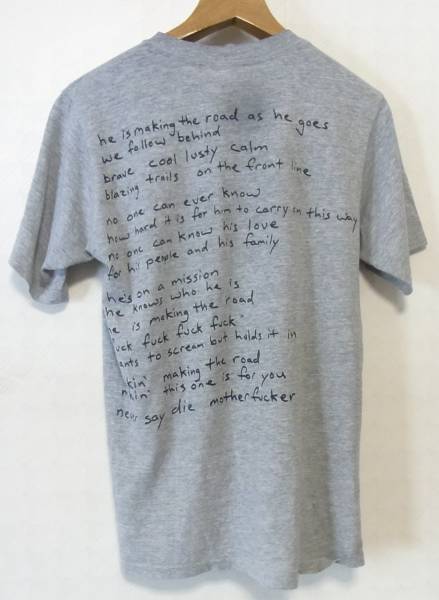 he is making the road as he goes
we follow behind
brave cool lusty calm
blazing trails on the front line
no one can ever know
how hard it is for him to carry on this way
no one can know his love
for his people and his family
he's on a mission
he knows who he is
he is making the road
uck fuck fuck fuck
ants to scream but holds it in
kin' making the road
nkin' this one is for you
never say die motherfucker